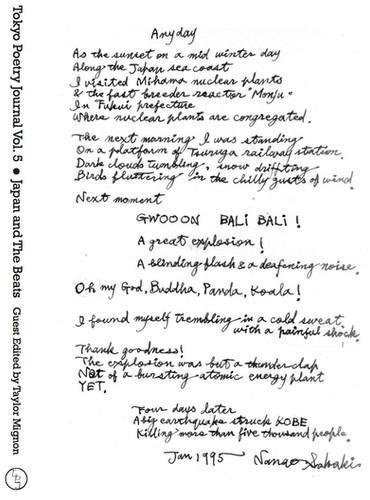 Tokyo Poetry Journal Vol. 5 ● Japan and The Beats Guest Edited by Taylor Mignon
Anyday
As the sunset on a mid winter day
Along the Japan sea coast
I visited Mihama nuclear plants
& the fast breeder reactor "Monju"
In Fukui prefecture
Where nuclear plants are congregated.
The next marning I was standing
On a platform of Tsuruga railway station.
Dark clouds tumbling, snow driftting
Birds fluttering in the chilly gusts of wind.
Next moment
GWOOON BALI BALI !
A great explosion !
A blinding flash & a deafening noise.
Oh my God, Buddha, Panda, Koala!
I found myself trembling in a cold sweat
with a painful shock.
Thank goodness!
The explosion was but a thunder clap
Not of a bursting atomic energy plant
YET.
Four days later
A big earthquake struck KOBE
Killing more than five thousand people.
Jan 1995 Nanao Sakaki